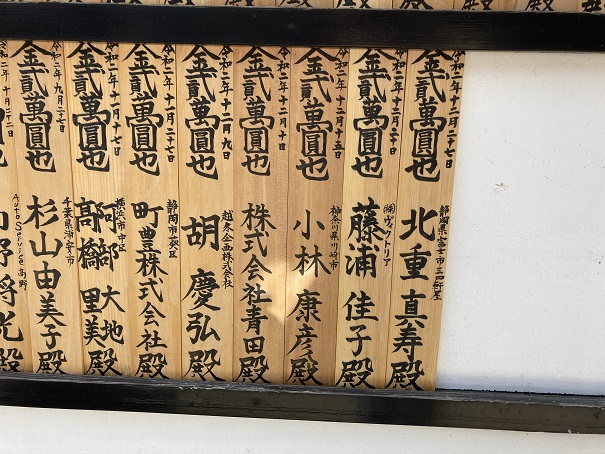 令和二年十二月二十七日
金貳萬圓也
静岡県富士市三四軒屋
北重真寿殿
令和二年十二月二十日
金貳萬圓也
㈱ヴィクトリア
藤浦佳子殿
令和二年十二月十五日
金貳萬圓也
神奈川県川崎市
小林康彦殿
令和二年十二月十日
金貳萬圓也
株式会社青田殿
令和二年十二月九日
金貳萬圓也
企画株式会社
胡慶弘殿
令和二年十一月二十七日
金貳萬圓也
静岡市葵区
町豊株式会社殿
令和二年十一月十七日
金貳萬圓也
横浜市中区
阿部大地
髙橋里美殿
九月二十七日
金貳萬圓也
千葉県浦安市
杉山由美子殿
Auto Service 高野
野将光殿